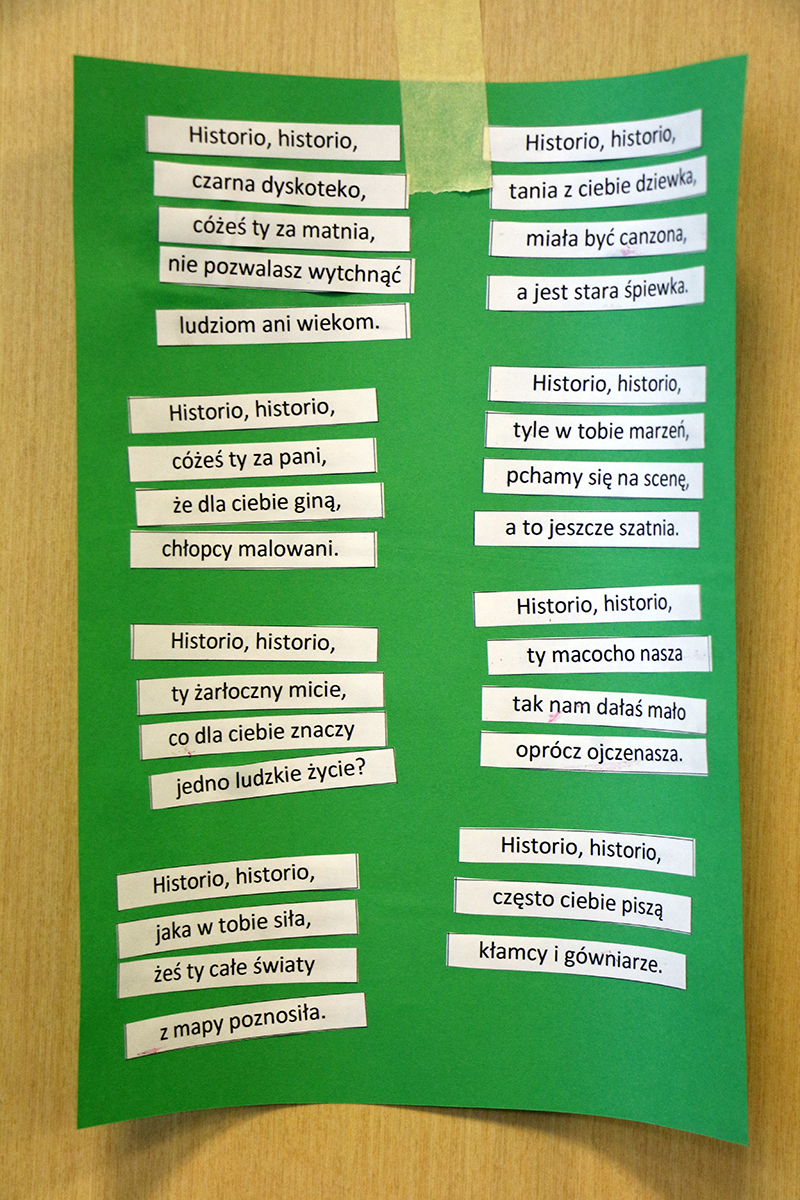 Historio, historio,
czarna dyskoteko,
cóżeś ty za matnia,
nie pozwalasz wytchnąć
ludziom ani wiekom.
Historio, historio,
cóżeś ty za pani,
że dla ciebie giną,
chłopcy malowani.
Historio, historio,
ty żarłoczny micie,
co dla ciebie znaczy
jedno ludzkie życie?
Historio, historio,
jaka w tobie siła,
żeś ty całe światy
z mapy poznosiła.
Historio, historio,
tania z ciebie dziewka,
miała być canzona,
a jest stara śpiewka.
Historio, historio,
tyle w tobie marzeń,
pchamy się na scenę,
a to jeszcze szatnia.
Historio, historio,
ty macocho nasza
tak nam dałaś mało
oprócz ojczenasza.
Historio, historio,
często ciebie piszą
kłamcy i gówniarze.